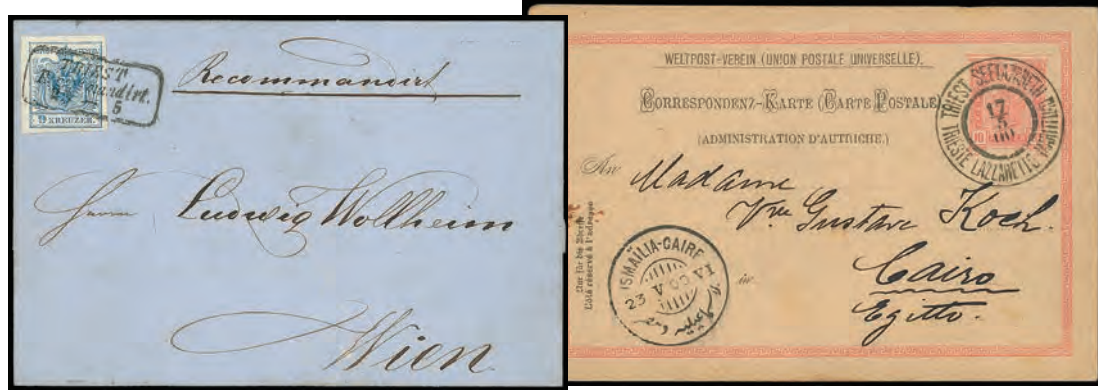 TRIEST
5
9 KREUZER.
Recommandirt
Herrn Ludwig Wollheim
Wien
WELTPOST-VEREIN (UNION POSTALE UNIVERSELLE).
CORRESPONDENZ-KARTE (CARTE POSTALE)
(ADMINISTRATION D'AUTRICHE.)
TRIEST SEELAZARETH
TRIESTE LAZZARETTO MARITTIMO
17
5
00
10
An
Madame
Vve Gustave Koch.
in
Cairo
Egitto.
Nur für die Adresse
Côté réservé à l'adresse
ISMAÏLIA-CAIRE
23 V 00 VI